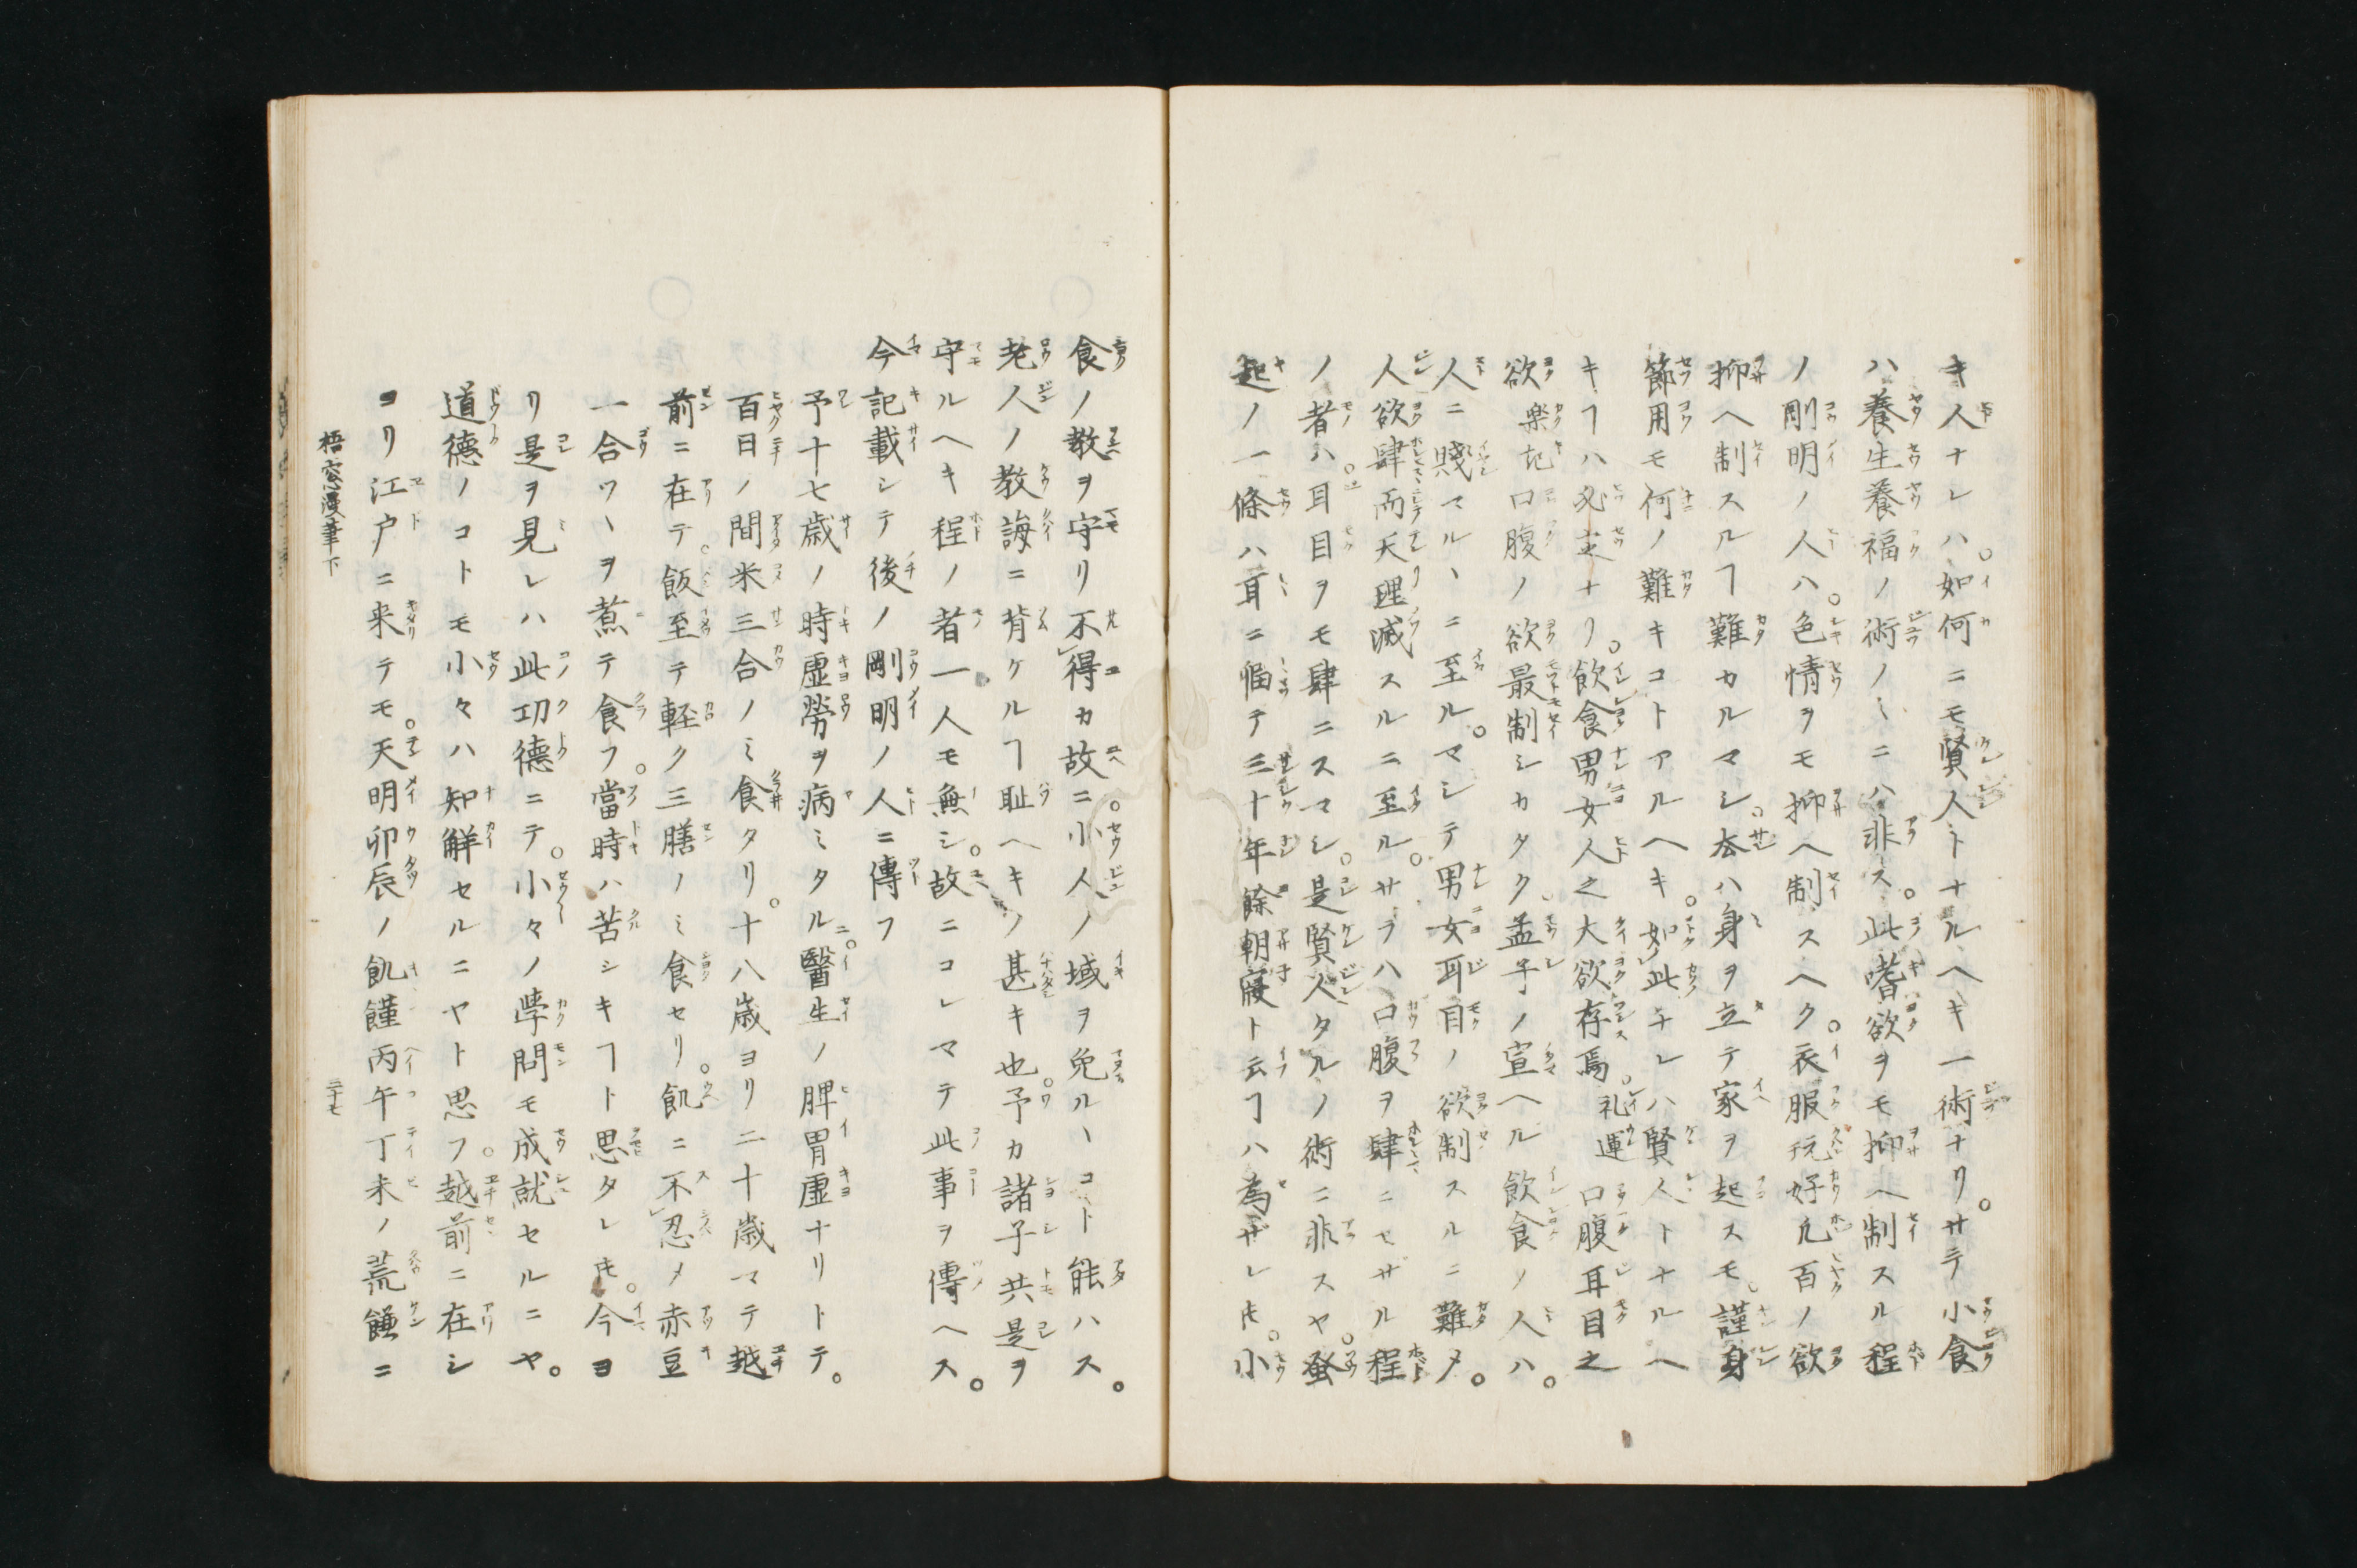 キ人ナレハ。如何ニモ賢人トナルヘキ一術ナリ。サテ小食
ハ養生養福ノ術ノミニハ非ス。此嗜欲ヲモ抑ヘ制スル程
ノ剛明ノ人ハ。色情ヲモ抑ヘ制スヘク。衣服玩好凢百ノ欲
抑ヘ制スルヿ難カルマシ。夲ハ身ヲ立テ家ヲ起スモ。謹身
節用モ何ノ難キコトアルヘキ。如此ナレハ賢人トナルヘ
キヿハ必定ナリ。飲食男女人之大欲存焉。礼運口腹耳目之
欲楽記口腹ノ欲最制シカタク。孟子ノ宣ヘル飲食ノ人ハ。
人ニ賤マルヽニ至ル。マシテ男女耳目ノ欲制スルニ難ク。
人欲肆而天理滅スルニ至ル。サラハ口腹ヲ肆ニセザル程
ノ者ハ。耳目ヲモ肆ニスマシ。是賢人タルノ術ニ非スヤ。蚤
起ノ一條ハ耳ニ惱テ三十年餘朝寢ト云ヿハ為ザレ𪜈。小
食ノ教ヲ守リ不得カ故ニ。小人ノ域ヲ免ルヽコト能ハス。
老人ノ教誨ニ背ケルヿ耻ヘキノ甚キ也。予カ諸子共是ヲ
守ルヘキ程ノ者一人モ無シ。故ニコレマテ此事ヲ傳ヘス。
今記載シテ後ノ剛明ノ人ニ傳フ
予十七歳ノ時虚勞ヲ病ミタルニ。醫生ノ脾胃虚ナリトテ。
百日ノ間米三合ノミ食タリ。十八歳ヨリ二十歳マテ越
前ニ在テ。飯至テ軽ク三膳ノミ食セリ。飢ニ不忍〆赤豆
一合ツヽヲ煮テ食フ。當時ハ苦シキヿト思タレ𪜈。今ヨ
リ是ヲ見レハ此功徳ニテ。小々ノ學問モ成就セルニヤ。
道徳ノコトモ小々ハ知解セルニヤト思フ。越前ニ在シ
ヨリ江戸ニ来テモ。天明卯辰ノ飢饉丙午丁未ノ荒饉ニ
梧窓漫筆下
三十七